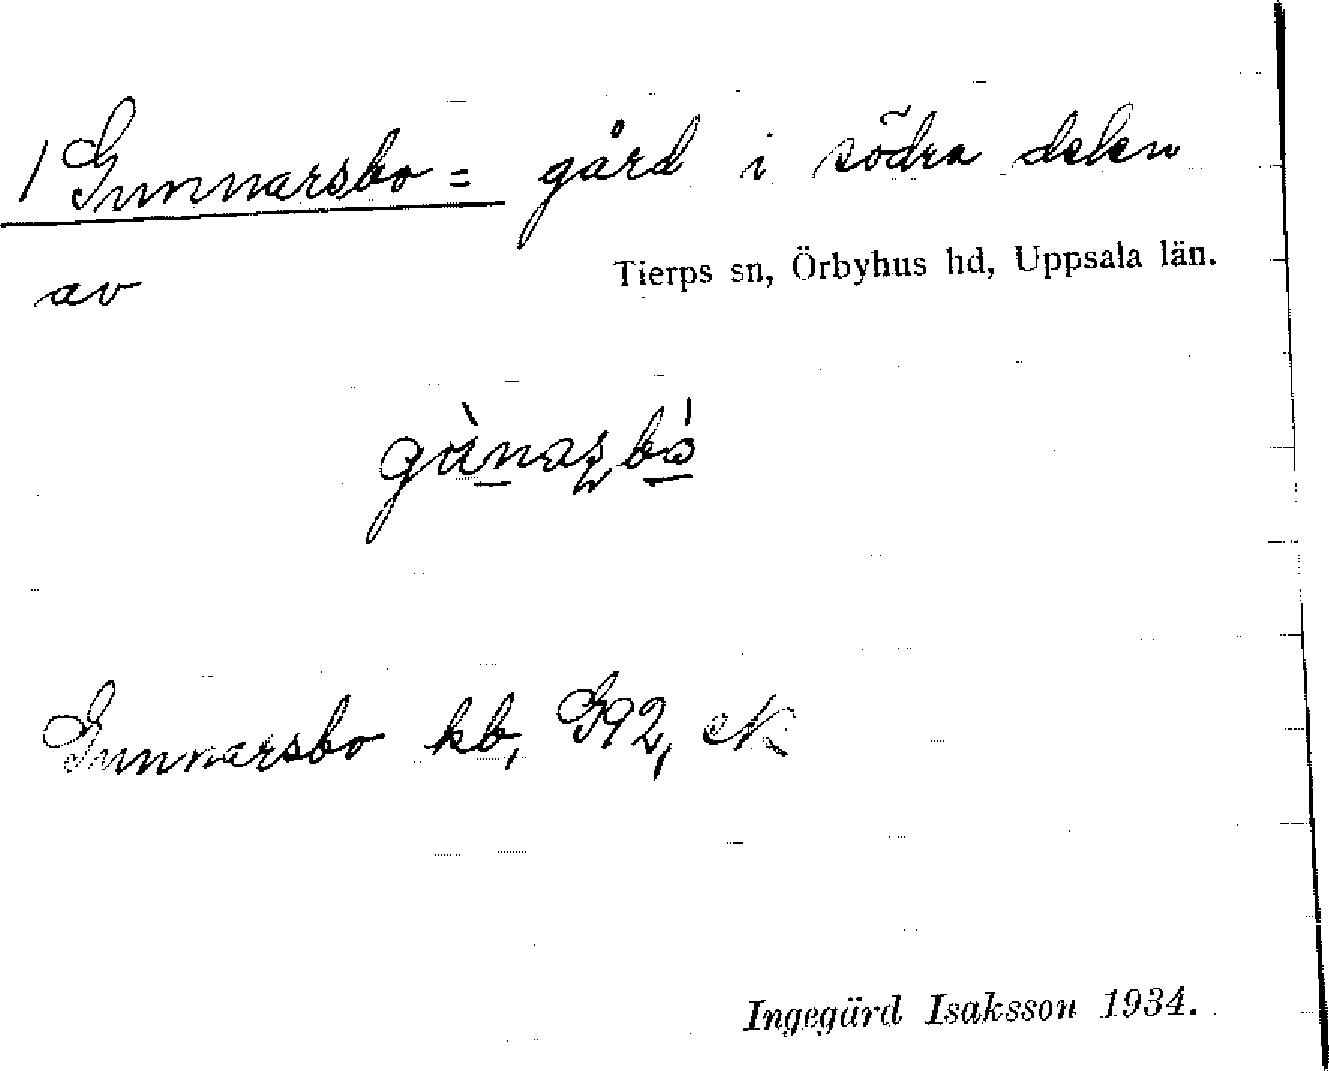 1 Gunnarsbo = gård i södra delen
av Tierps sn, Örbyhus hd, Uppsala län.
Gunnarsbo kb, G92, eK
Ingegärd Isaksson 1934.